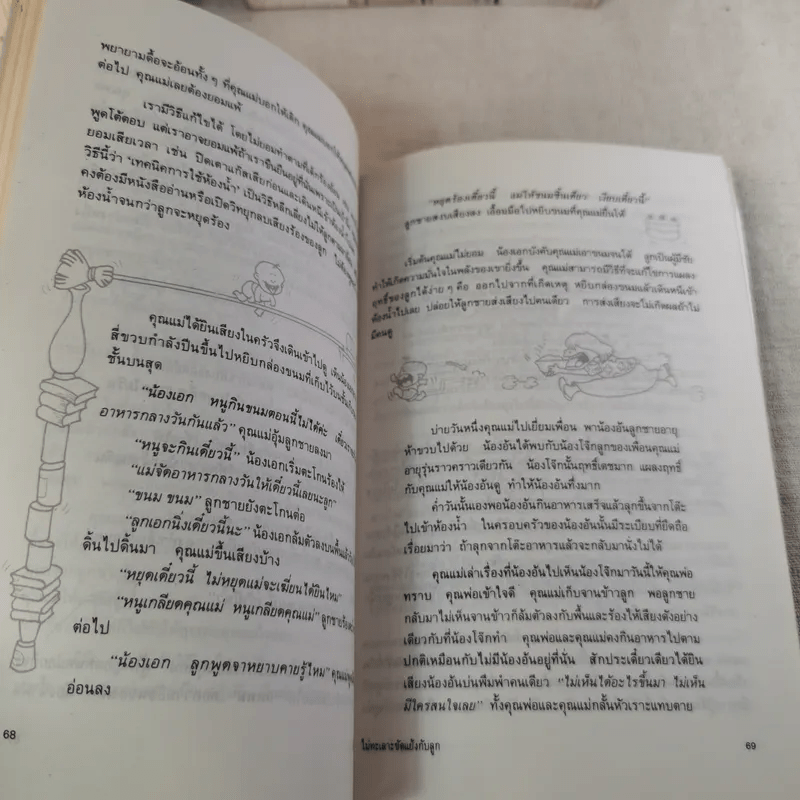 พยายามดื้อจะอ้อนทั้ง ๆ ที่คุณแม่บอกให้เลิก
ต่อไป คุณแม่เลยต้องยอมแพ้
เรามีวิธีแก้ไขได้ โดยไม่ยอมทำตามที่เด็กเรียกร้อง
พูดโต้ตอบ แต่เราอาจยอมแพ้ถ้าเราขืนยืนอยู่ที่นั่น
ยอมเสียเวลา เช่น ปิดเตาแก๊สเสียก่อนและเดินหนีเข้า
วิธีนี้ว่า ‘เทคนิคการใช้ห้องน้ำ’ เป็นวิธีหลีกเลี่ยงไม่ให้ลูก
คงต้องมีหนังสืออ่านหรือเปิดวิทยุกลบเสียงร้องของลูก
ห้องน้ำจนกว่าลูกจะหยุดร้อง
คุณแม่ได้ยินเสียงในครัวจึงเดินเข้าไปดู
สี่ขวบกำลังปีนขึ้นไปหยิบกล่องขนมที่เก็บไว้บน
ชั้นบนสุด
“น้องเอก หนูกินขนมตอนนี้ไม่ได้ค่ะ
อาหารกลางวันกันแล้ว” คุณแม่อุ้มลูกชายลงมา
“หนูจะกินเดี๋ยวนี้” น้องเอกเริ่มตะโกนร้องไห้
“แม่จัดอาหารกลางวันให้เดี๋ยวนี้เลยนะลูก”
“ขนม ขนม” ลูกชายยังตะโกนต่อ
“ลูกเอกนิ่งเดี๋ยวนี้นะ” น้องเอกล้มตัวลงบนพื้นแล้ว
ดิ้นไปดิ้นมา คุณแม่ขึ้นเสียงบ้าง
“หยุดเดี๋ยวนี้ ไม่หยุดแม่จะเฆี่ยนได้ยินไหม”
“หนูเกลียดคุณแม่ หนูเกลียดคุณแม่” ลูกชายร้อง
ต่อไป
“น้องเอก ลูกพูดจาหยาบคายรู้ไหม” คุณแม่
อ่อนลง
68
“หยุดร้องเดี๋ยวนี้ แม่ให้ขนมชิ้นเดียว เงียบเดี๋ยวนี้”
ลูกชายสงบเสียงลง เอื้อมมือไปหยิบขนมที่คุณแม่ยื่นให้
เริ่มต้นคุณแม่ไม่ยอม น้องเอกบังคับคุณแม่เอาขนมจนได้ ลูกเป็นผู้มีชัย
ทำให้เกิดความมั่นใจในพลังของเขายิ่งขึ้น คุณแม่สามารถมีวิธีที่จะแก้ไขการแผลง
ฤทธิ์ของลูกได้ง่าย ๆ คือ ออกไปจากที่เกิดเหตุ หยิบกล่องขนมแล้วเดินหนีเข้า
ห้องน้ำไปเลย ปล่อยให้ลูกชายส่งเสียงไปคนเดียว การส่งเสียงจะไม่เกิดผลถ้าไม่
มีคนดู
บ่ายวันหนึ่งคุณแม่ไปเยี่ยมเพื่อน พาน้องอันลูกชายอายุ
ห้าขวบไปด้วย น้องอันได้พบกับน้องโจ๊กลูกของเพื่อนคุณแม่
อายุรุ่นราวคราวเดียวกัน น้องโจ๊กนั้นฤทธิ์เดชมาก แผลงฤทธิ์
กับคุณแม่ให้น้องอันดู ทำให้น้องอันทึ่งมาก
ค่ำวันนั้นเองพอน้องอันกินอาหารเสร็จแล้วลุกขึ้นจากโต๊ะ
ไปเข้าห้องน้ำ ในครอบครัวของน้องอันนั้นมีระเบียบที่ยึดถือ
เรื่อยมาว่า ถ้าลุกจากโต๊ะอาหารแล้วจะกลับมานั่งไม่ได้
คุณแม่เล่าเรื่องที่น้องอันไปเห็นน้องโจ๊กมาวันนี้ให้คุณพ่อ
ทราบ คุณพ่อเข้าใจดี คุณแม่เก็บจานข้าวลูก พอลูกชาย
กลับมาไม่เห็นจานข้าวก็ล้มตัวลงกับพื้นและร้องไห้เสียงดังอย่าง
เดียวกับที่น้องโจ๊กทำ คุณพ่อและคุณแม่คงกินอาหารไปตาม
ปกติเหมือนกับไม่มีน้องอันอยู่ที่นั่น สักประเดี๋ยวเดียวได้ยิน
เสียงน้องอันบ่นพึมพำคนเดียว “ไม่เห็นได้อะไรขึ้นมา ไม่เห็น
มีใครสนใจเลย” ทั้งคุณพ่อและคุณแม่กลั้นหัวเราะแทบตาย
ไม่ทะเลาะขัดแย้งกับลูก
69